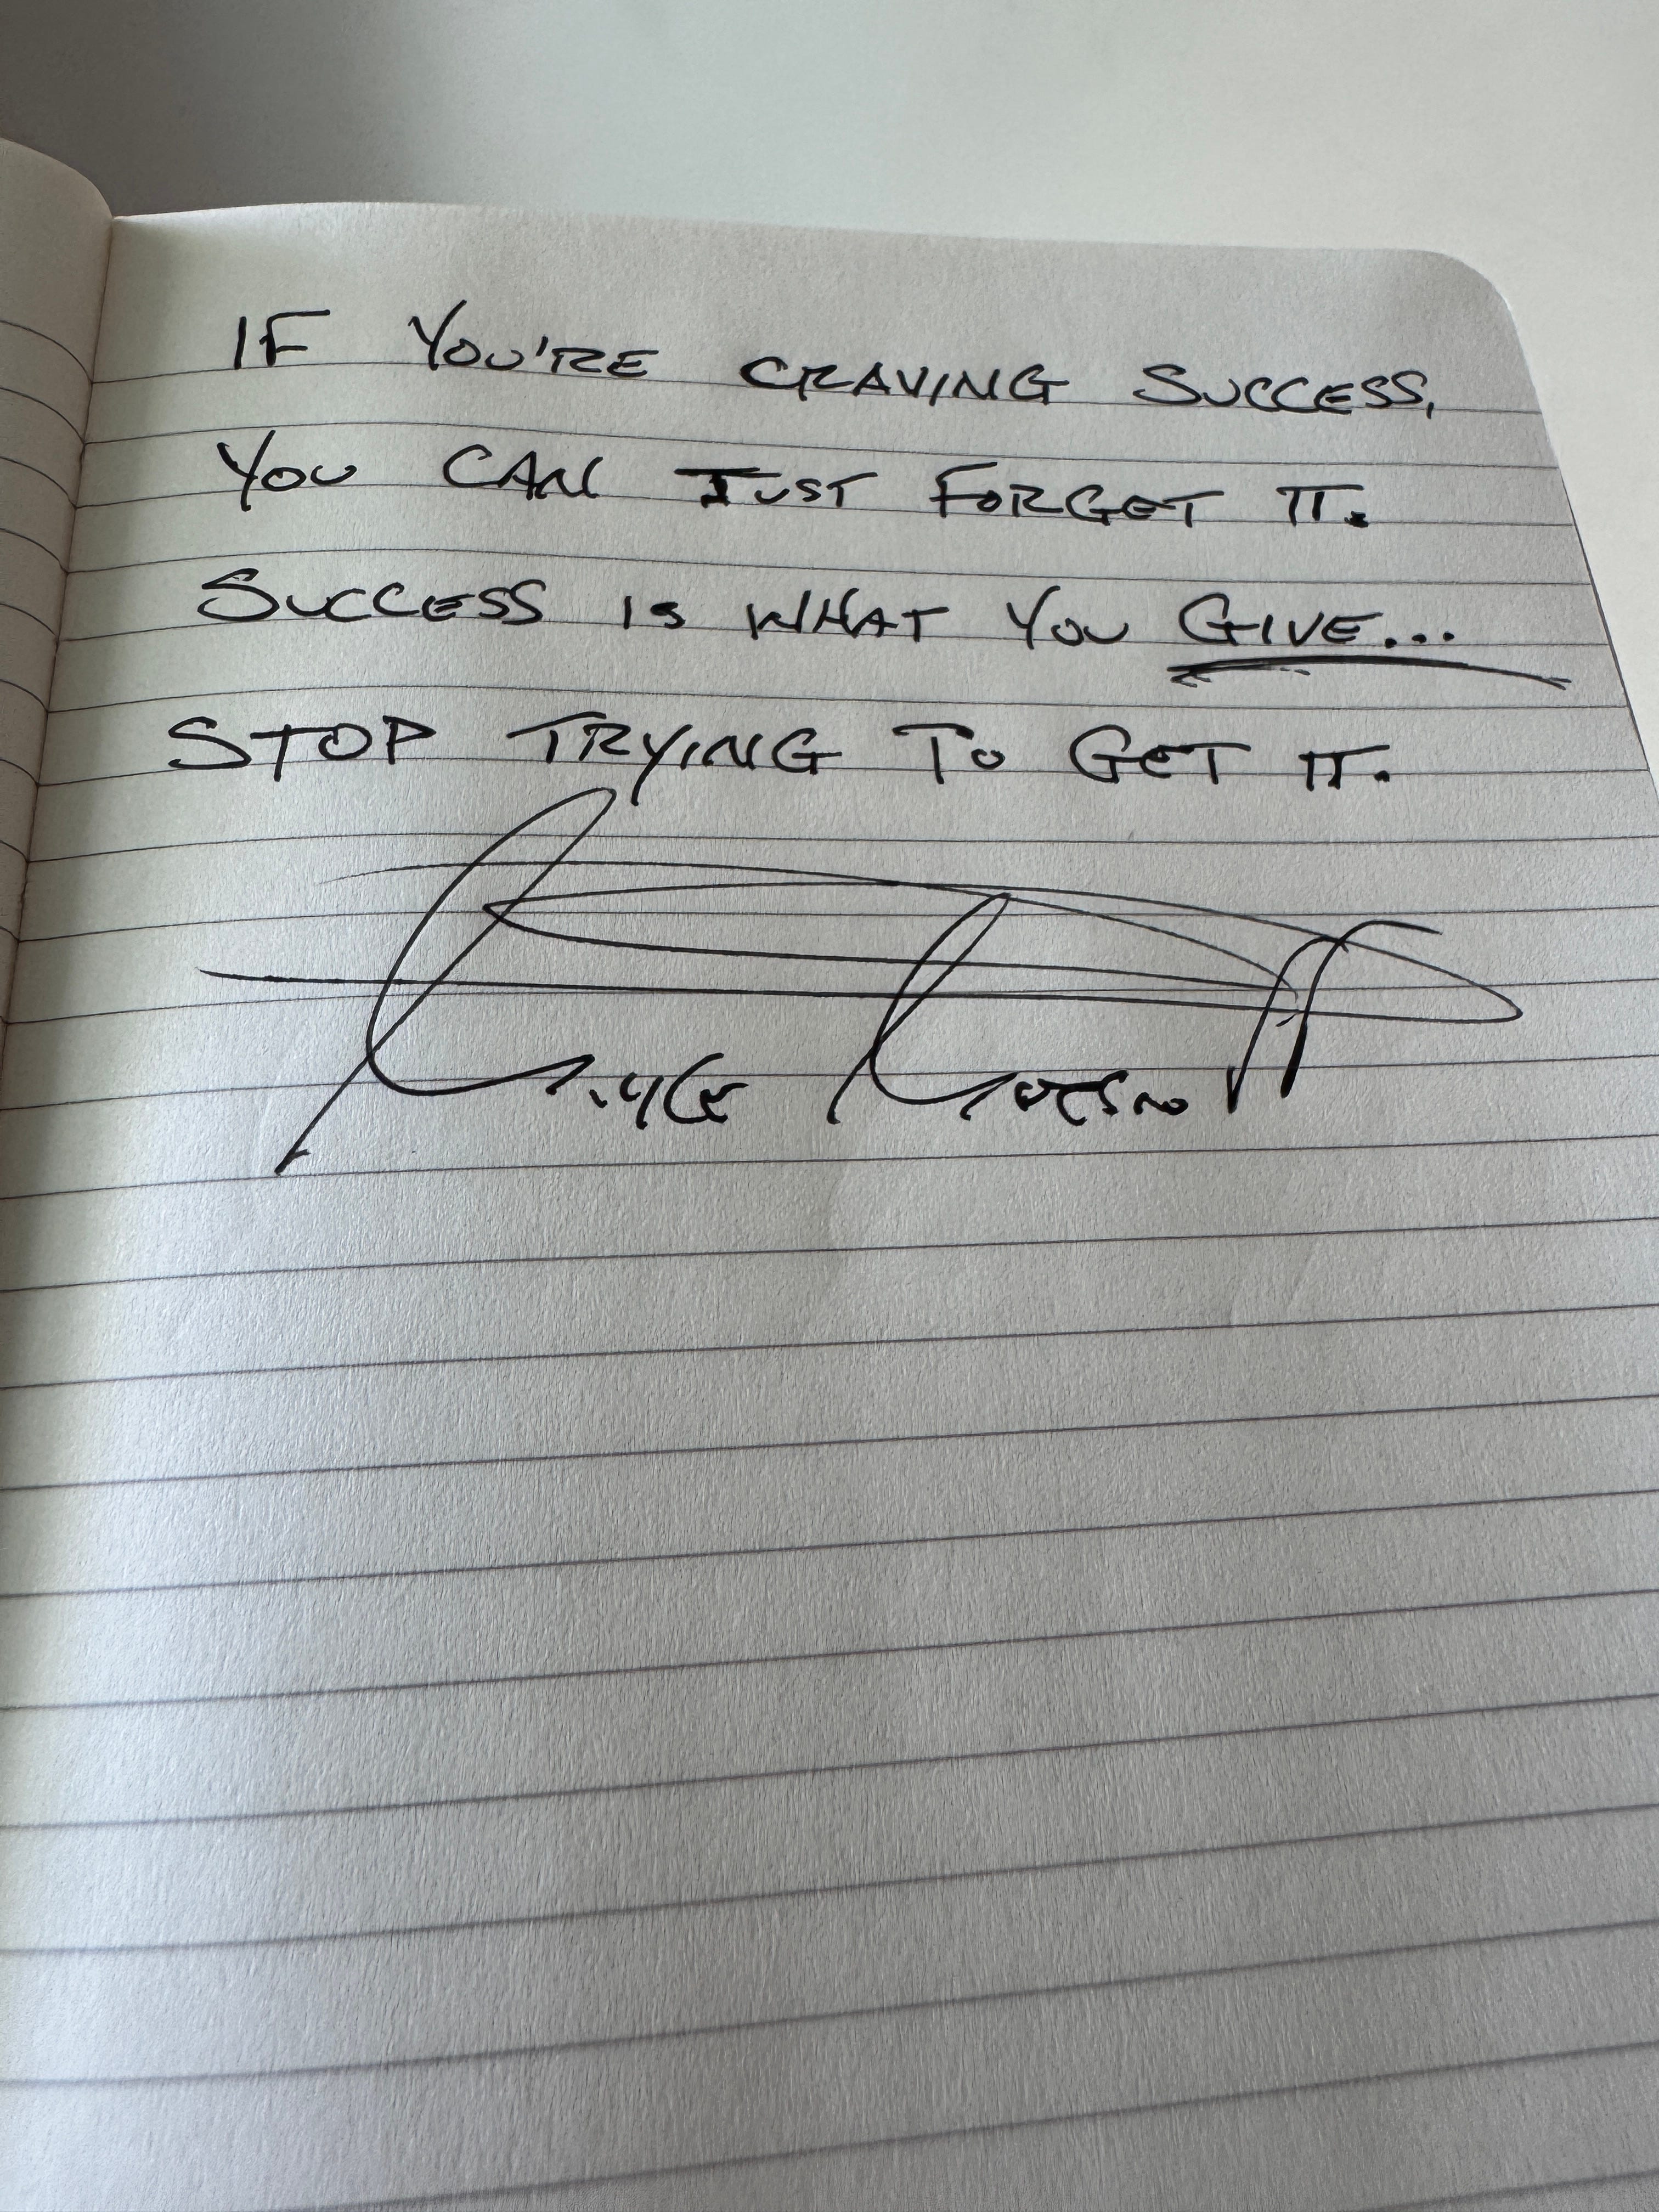 IF YOU'RE CRAVING SUCCESS,
YOU CAN JUST FORGET IT.
SUCCESS IS WHAT YOU GIVE...
STOP TRYING TO GET IT.